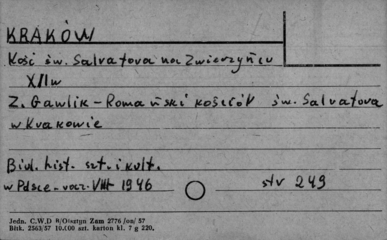 KRAKÓW
Kość św. Salvatora na Zwierzyńcu
XII w
Z. Gawlik - Romański kościół św. Salvatora
w Krakowie
Biul. hist. szt. i kult.
w Polsce - rocz. VIII 1946 str 249
Jedn. C.W.D B/Olsztyn Zam 2776 /on/ 57
Bisk. 2563/57 10.000 szt. karton kl. 7 g 220.